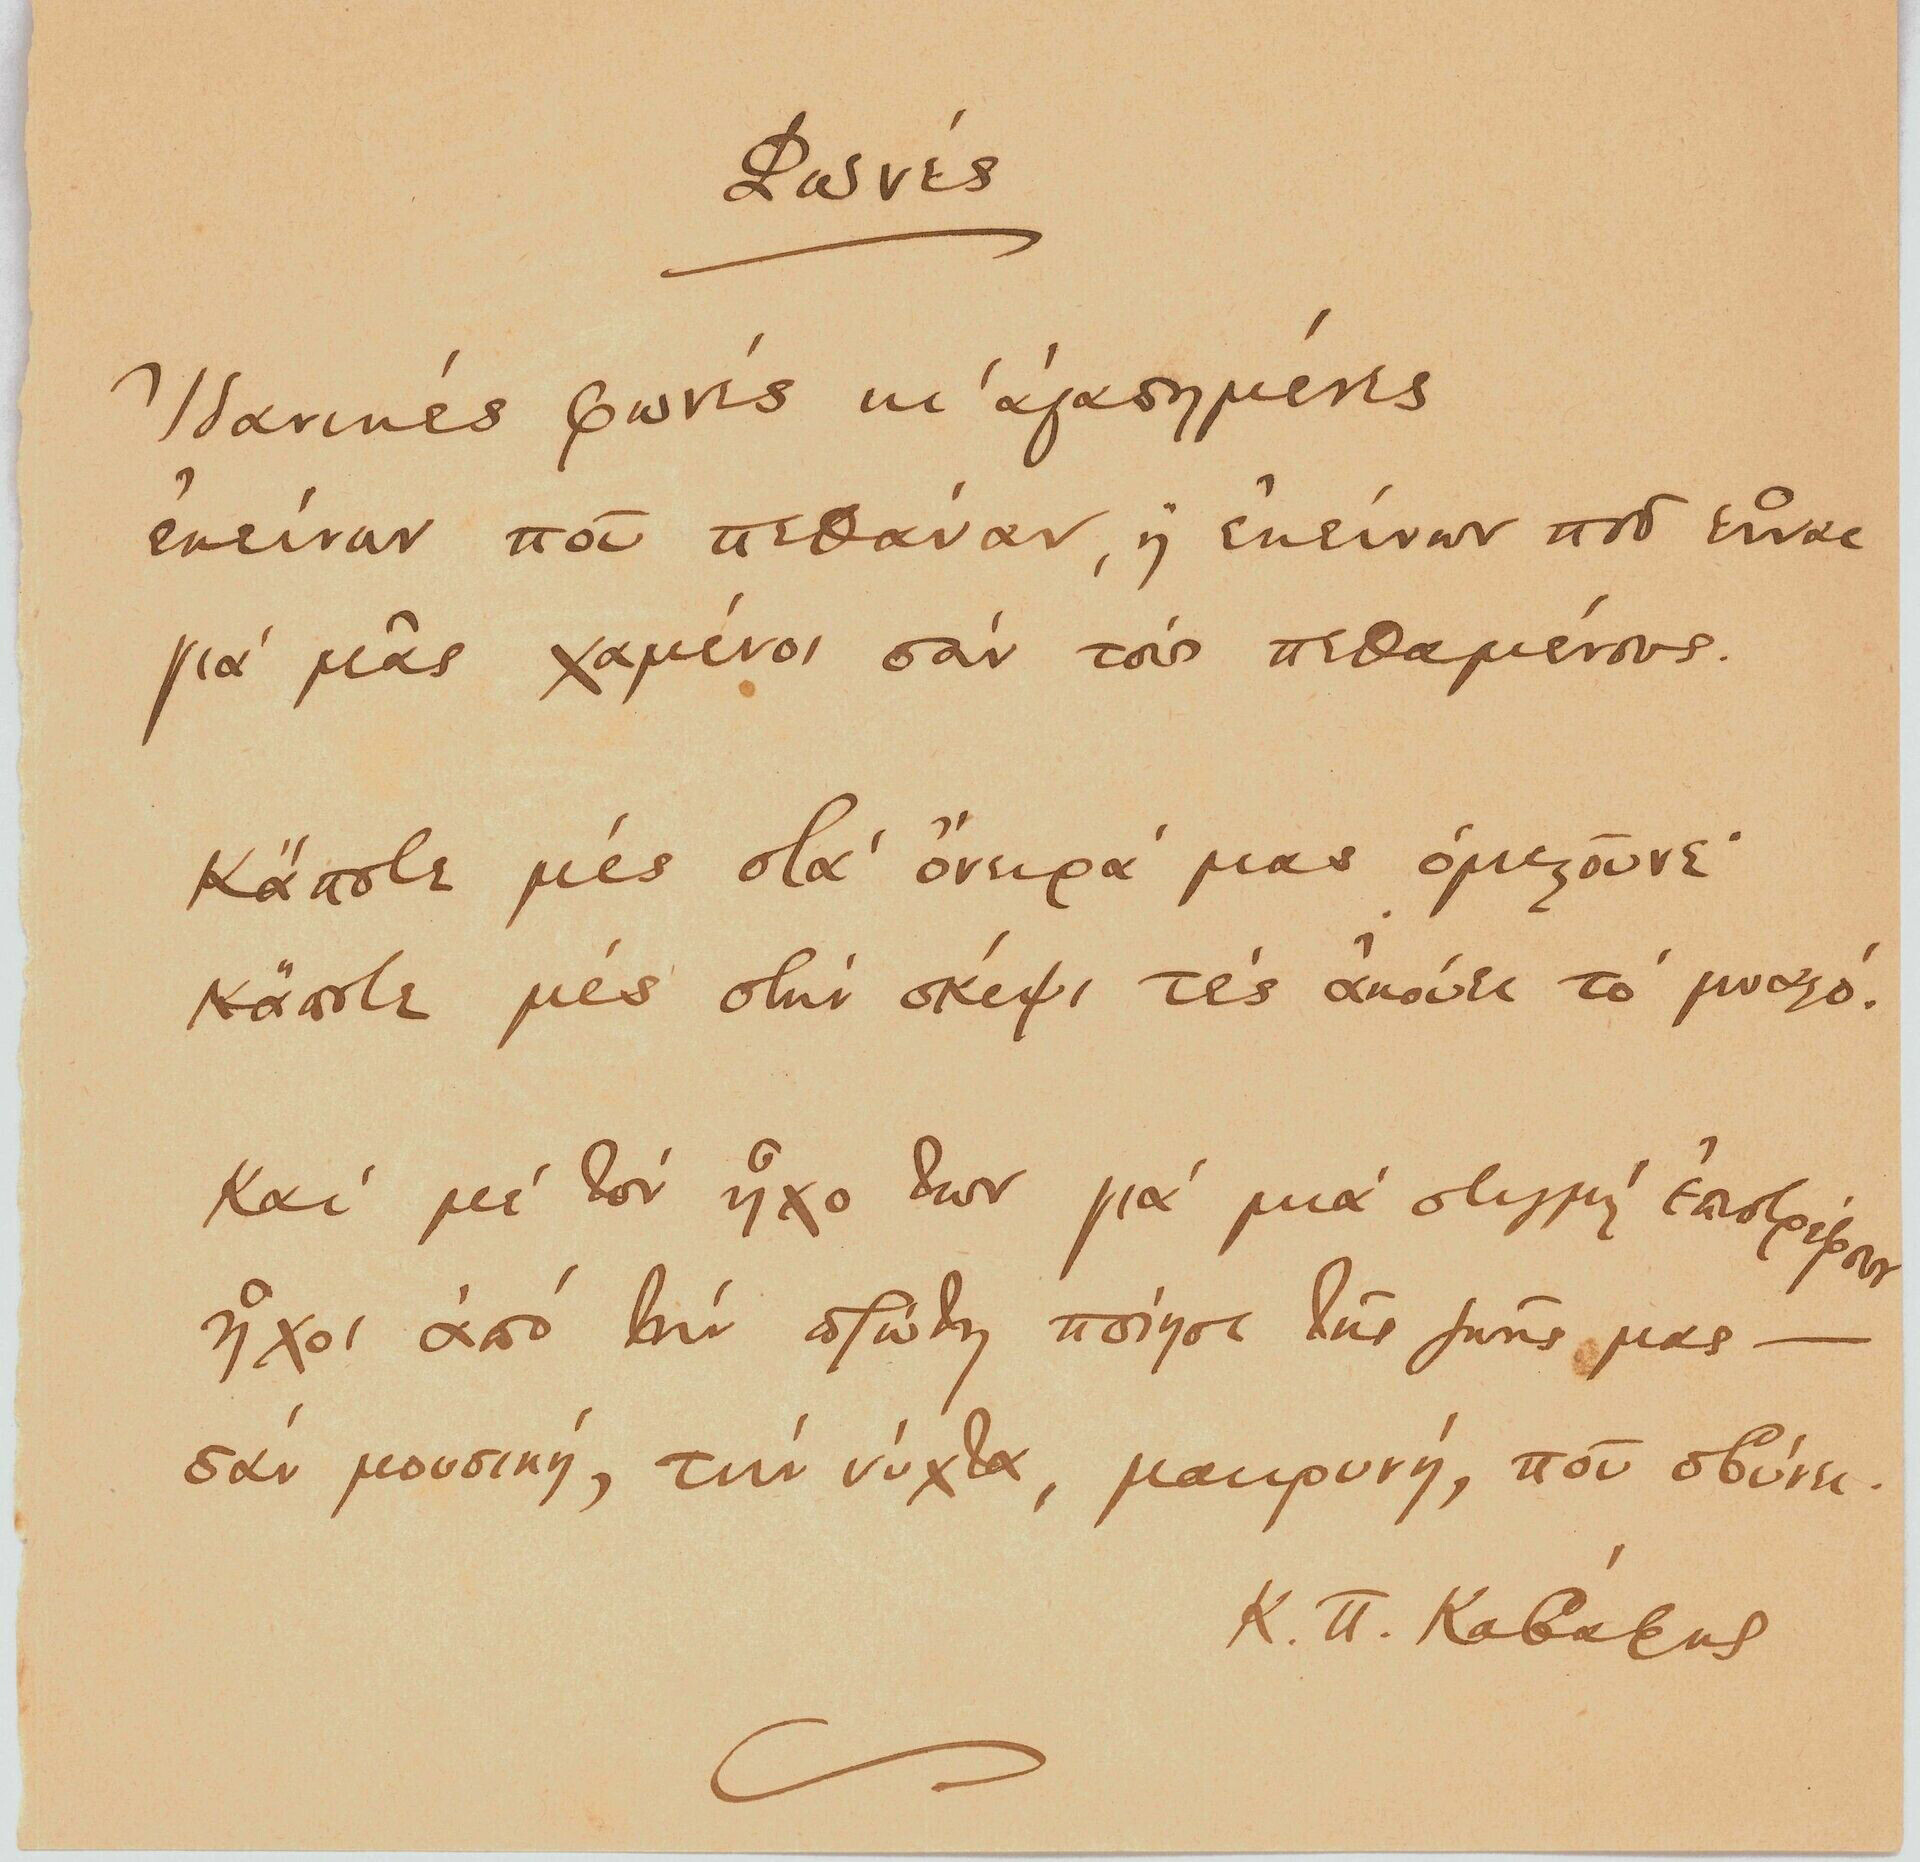 Φωνές
Ἰδανικές φωνές κι ἀγαπημένες
ἐκείνων ποῦ πεθάναν, ἤ ἐκείνων ποῦ εἶναι
γιά μᾶς χαμένοι σάν τούς πεθαμένους.
Κάποτε μές στά ὄνειρά μας ὁμιλοῦνε·
κάποτε μές στήν σκέψι τές ἀκούει τό μυαλό.
Και μέ τόν ἦχο των γιά μιά στιγμή ἐπιστρέφουν
ἦχοι ἀπό τήν πρώτη ποίησι τῆς ζωῆς μας —
σάν μουσική, τήν νύχτα, μακρυνή, ποῦ σβύνει.
Κ. Π. Καβάφης